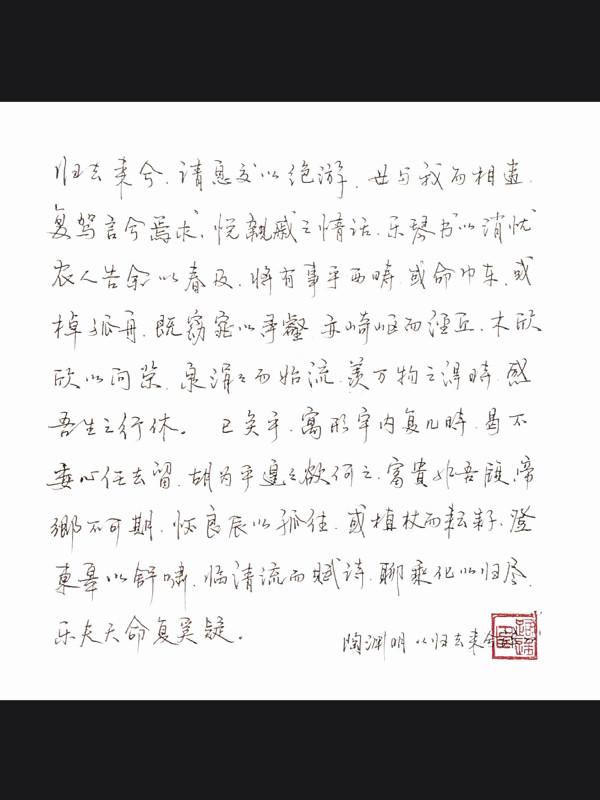 归去来兮、请息交以绝游、世与我而相遗、
复驾言兮焉求、悦親戚之情话、乐琴书以消忧
农人告余以春及、将有事乎西畴、或命巾车、或
棹孤舟、既窈窕以寻壑、亦崎岖而泾丘、木欣
欣以向荣、泉涓々而始流、羡万物之得時、感
吾生之行休。 已矣乎、寓形宇内复几時、曷不
委心任去留、胡为乎遑々欲何之、富貴非吾願、帝
鄉不可期、怀良辰以孤往、或植杖而耘耔、澄
東皋以舒嘯、临清流而赋诗、聊乘化以归尽、
乐夫天命复奚疑。
陶渊明以归去来兮